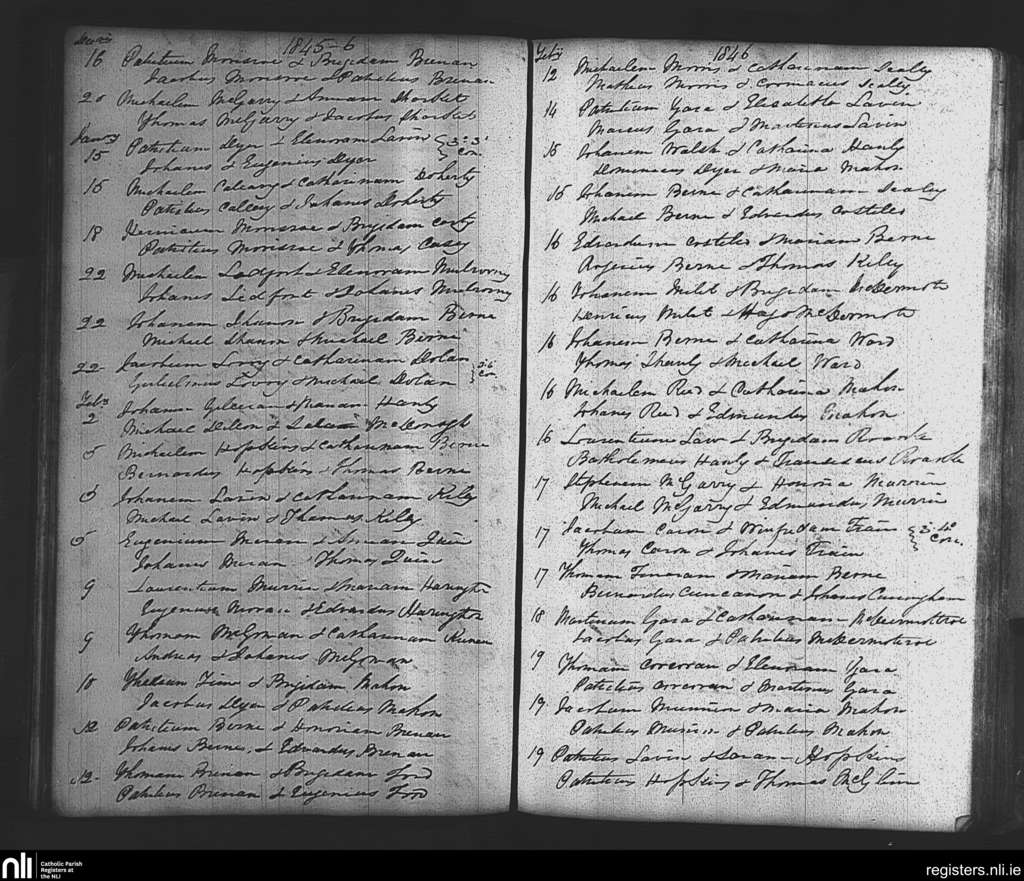 1845-6
16 Patritium Morisroe & Brigidam Brenan
Jacobus Morisroe & Patritius Brenan
20 Michaelem McGarry & Annam
Thomas McGarry & Jacobus
Jany
15 Patritium Dyer & Elenoram Lavin 3: 3
Johanes & Eugenius Dyer Con.
15 Michaelem Caleary & Catharinam Doherty
Patritius Calleary & Johanes Doherty
18 Morisroe & Brigidam
Patritius Morisroe & Thomas Casey
22 Michaelem & Elenoram Mulroony
Johanes Ledford & Johanes Mulroony
22 Johanem Shanon & Brigidam Birne
Michael Shanon & Michael Birne
22 Jacobum Lowry & Catharinam Dolan
Gulielmus Lowry & Michael Dolan Con
Feby
2 Johanem & Mariam Hanly
Michael Dillon & McDonogh
5 Michaelem Hopkins & Catharinam Berne
Bernardus Hopkins & Thomas Berne
5 Johanem Lavin & Catharinam Kiley
Michael Lavin & Thomas Kiley
5 Eugenium & Annam Quin
Johanes & Thomas Quin
9 Laurentium Murrin & Mariam
Eugenius Moran & Edvardus Harington
9 Thomam McGowan & Catharinam
Andreas & Johanes McGowan
10 & Brigidam Mahon
Jacobus Dyer & Patritius Mahon
12 Patritium Berne & Honoriam Brenan
Johanes Berne, & Edvardus Brenan
12 Thomam Brenan & Brigidam Ford
Patritius Brenan & Eugenius Ford
Feby 1846
12 Michaelem Morris & Catharinam Scally
Matheus Morris & Cormacus Scally
14 Patritium Gara & Elisabeth Lavin
Marcus Gara & Martinus Lavin
15 Johanem Walsh & Catharina Hanly
Dominicus Dyer & Maria Mahon
15 Johanem Berne & Catharinam
Michael Berne & Edvardus Costeloe
16 Edvardum Costeloe & Mariam Berne
Berne & Thomas Kiley
16 Johanem & Brigidam McDermott
Henricus & Hugo McDermott
16 Johanem Berne & Catharina Ward
Thomas & Michael Ward
16 Michaelem Reid & Catharina Mahon
Johanes Reid & Edmundus Mahon
16 Laurentium Law & Brigidam
Batholemeus Hanly & Franciscus
17 Stephenem McGarry & Honoria Murrin
Michael McGarry & Edmundus Murrin
17 Jacobum Caron & Winifridam 3: 4o
Thomas Caron & Johanes Con.
17 Thomam & Mariam Berne
Bernardus & Johanes Cunningham
18 Martinum Gara & Catharinam
Jacobus Gara & Patritius
19 Thomam Corcoran & Elenoram Gara
Patritius Corcoran & Martinus Gara
19 Jacobum & Maria Mahon
Patritius & Patritius Mahon
19 Patritius Lavin & Hopkins
Patritius Hopkins & Thomas McGlinn
nli Catholic Parish
Registers at
the NLI
registers.nli.ie